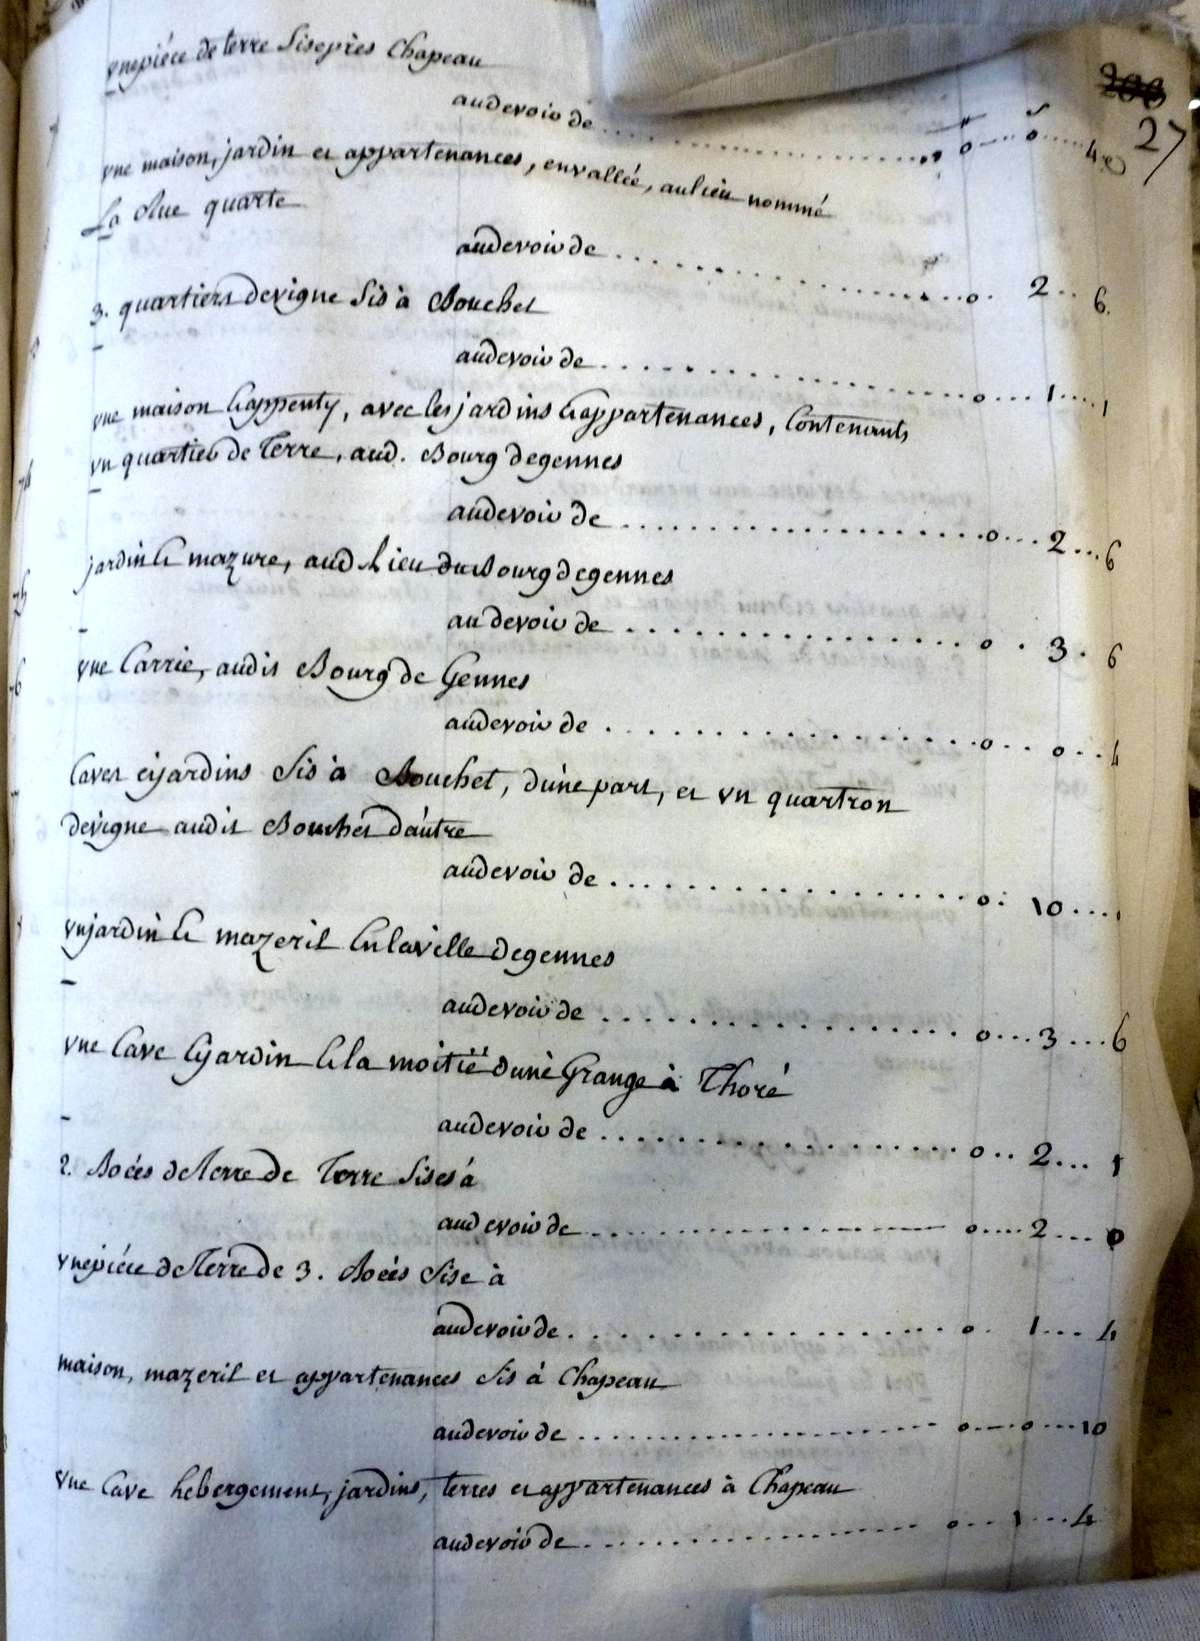 200
27
vne piéce de terre Sise près Chapeau
au devoir de . . . . o — o . . . 4 d
vne maison, jardin et appartenances, en vallée, au lieu nommé
La Rue quarte
au devoir de . . . . o . 2 . . 6.
3. quartiers de vigne Sis à Bouchet
au devoir de . . . . o . . . 1 . . . 1
vne maison & appenty, avec les jardins & appartenances, Contenants
vn quartier de Terre, aud. Bourg de gennes
au devoir de . . . . o . . . 2 . . . 6
jardin & mazure, aud Lieu du Bourg de gennes
au devoir de . . . . o . 3 . 6
vne Carrie, audit Bourg de Gennes
au devoir de . . . . o . . o . . 4
Caves & jardins Sis à Bouchet, d'une part, et vn quartron
de vigne audit Bouchet d'autre
au devoir de . . . . o . 10 . . . .
vn jardin & mazeril En la ville de gennes
au devoir de . . . . o . . . 3 . . . 6
vne Cave & jardin & la moitié d'une Grange à Thoré
au devoir de . . . . o . . 2 . . . 1
2. Boées de Terre de Terre Sises à
au devoir de . . . . o . . . . 2 . . . 0
vne piéce de Terre de 3. Boées Sise à
au devoir de . . . . o . 1 . . . 4
maison, mazeril et appartenances Sis à Chapeau
au devoir de . . . . o . — o . . . . 10
vne Cave hebergement, jardins, terres et appartenances à Chapeau
au devoir de . . . . o . . . 1 . . . 4